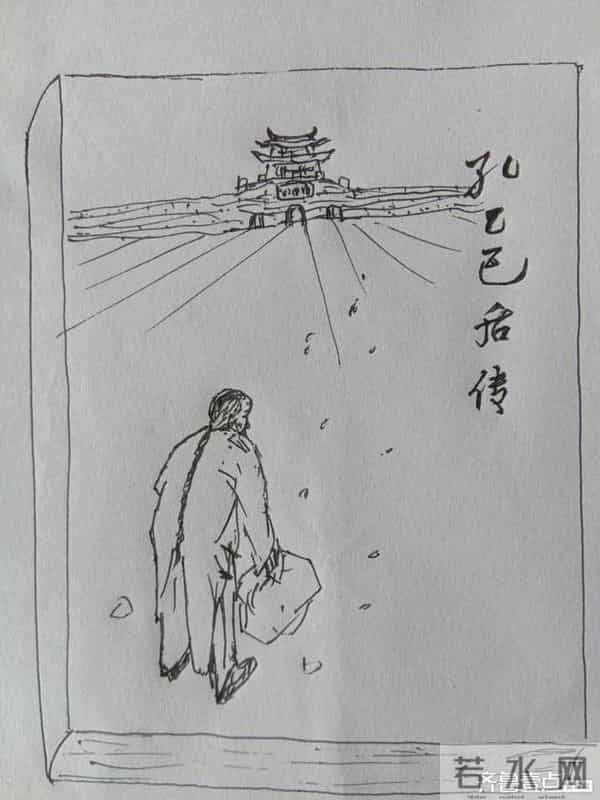 孔乙己后传
若水网
齐鲁壹点